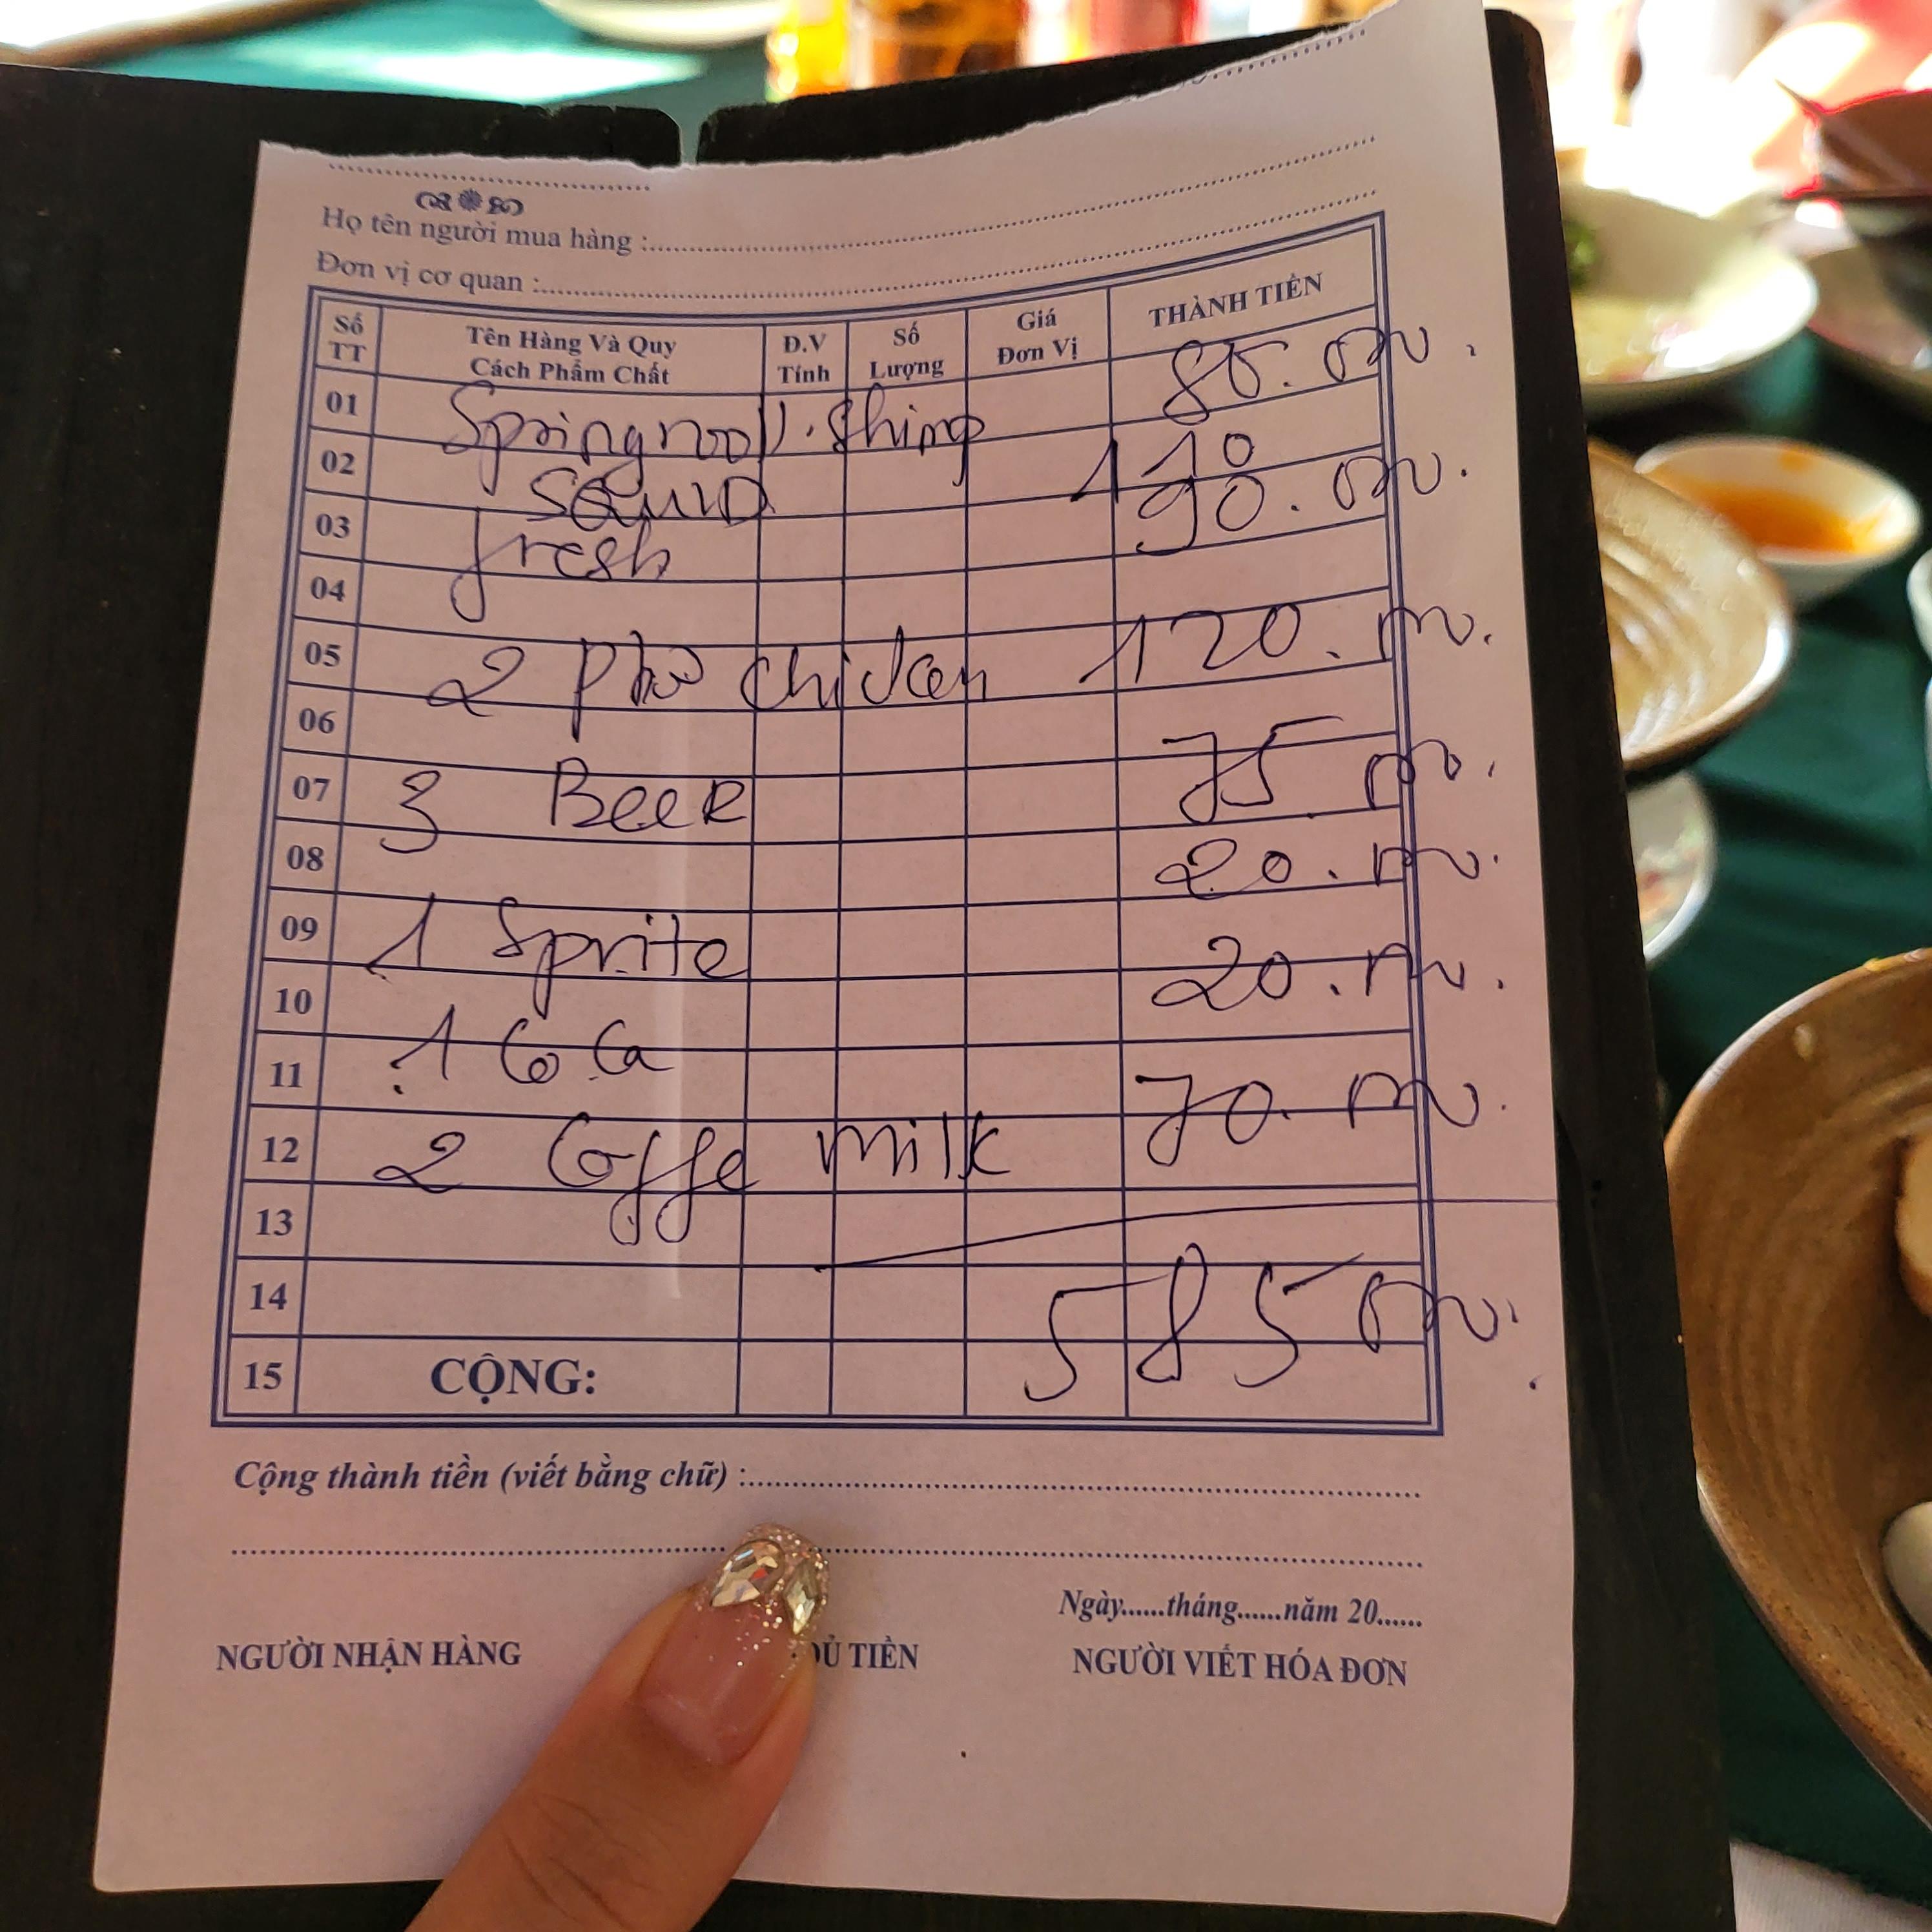 Họ tên người mua hàng :
Đơn vị cơ quan :
Số TT Tên Hàng Và Quy Cách Phẩm Chất Đ.V Tính Số Lượng Giá Đơn Vị THÀNH TIỀN
01 Springrooll. Shimp 85.
02 SQUID 110
03 fresh 90.
04
05 2 Phở chicken 120.
06
07 3 Beer 75
08 20.
09 1 Sprite
10 20.
11 1 Co Ca
12 2 Coffe milk 70.
13
14 585
15 CỘNG:
Cộng thành tiền (viết bằng chữ) :
Ngày......tháng......năm 20......
NGƯỜI NHẬN HÀNG ĐỦ TIỀN NGƯỜI VIẾT HÓA ĐƠN